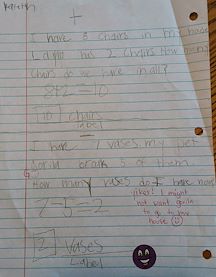 +
I have 8 chairs in my house
Layla has 2 chairs How many
chairs do we have in all?
8+2=10
10 chairs
label
I have 7 vases. my pet
gorilla break 5 of them
How many vases do I have now
7-5=2
yikes! I might
not want gorilla
to go to your
house
2 vases
Label